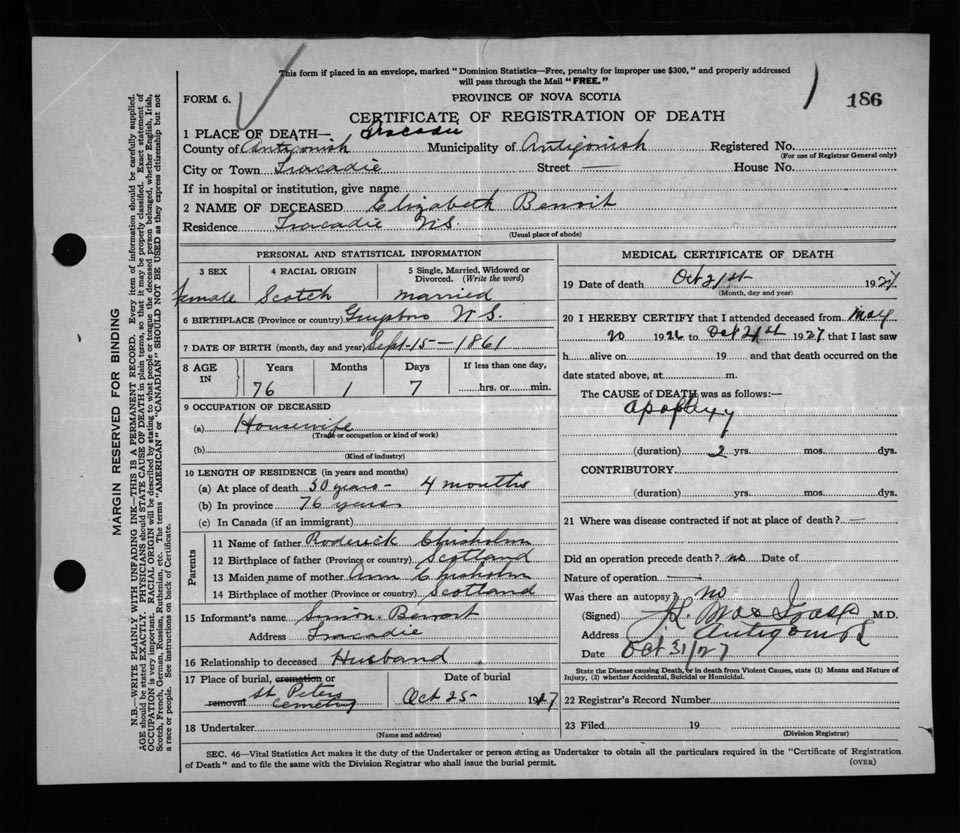 This form if placed in an envelope, marked "Dominion Statistics—Free, penalty for improper use $300," and properly addressed
will pass through the Mail "FREE."
FORM 6.
PROVINCE OF NOVA SCOTIA
186
CERTIFICATE OF REGISTRATION OF DEATH
1 PLACE OF DEATH— Tracadie
County of Antigonish Municipality of Antigonish Registered No.
(For use of Registrar General only)
City or Town Tracadie Street — House No.
If in hospital or institution, give name
2 NAME OF DECEASED Elizabeth Benoit
Residence Tracadie N.S.
(Usual place of abode)
PERSONAL AND STATISTICAL INFORMATION
3 SEX 4 RACIAL ORIGIN 5 Single, Married, Widowed or
Divorced. (Write the word)
female Scotch married
6 BIRTHPLACE (Province or country) N.S.
7 DATE OF BIRTH (month, day and year) Sept-15-1861
8 AGE IN Years Months Days If less than one day,
76 1 7 hrs. or min.
9 OCCUPATION OF DECEASED
(a) Housewife
(Trade or occupation or kind of work)
(b)
(Kind of industry)
10 LENGTH OF RESIDENCE (in years and months)
(a) At place of death 50 years - 4 months
(b) In province 76 years
(c) In Canada (if an immigrant)
Parents
11 Name of father Roderick Chisholm
12 Birthplace of father (Province or country) Scotland
13 Maiden name of mother Ann Chisholm
14 Birthplace of mother (Province or country) Scotland
15 Informant's name Simon Benoit
Address Tracadie
16 Relationship to deceased Husband
17 Place of burial, cremation or removal Date of burial
St. Peters Cemetry Oct 25 - 1927
18 Undertaker
(Name and address)
MEDICAL CERTIFICATE OF DEATH
19 Date of death Oct 21st 1927
(Month, day and year)
20 I HEREBY CERTIFY that I attended deceased from May
20 1926 to Oct 21st 1927 that I last saw
h alive on 19 and that death occurred on the
date stated above, at m.
The CAUSE of DEATH was as follows:—
apoplexy
(duration) 2 yrs. mos. dys.
CONTRIBUTORY
(duration) yrs. mos. dys.
21 Where was disease contracted if not at place of death? —
Did an operation precede death? no Date of
Nature of operation —
Was there an autopsy? no
(Signed) M.D.
Address Antigonish
Date Oct 31/27
State the Disease causing Death, or in death from Violent Causes, state (1) Means and Nature of
Injury, (2) whether Accidental, Suicidal or Homicidal.
22 Registrar's Record Number
23 Filed 19
(Division Registrar)
SEC. 46—Vital Statistics Act makes it the duty of the Undertaker or person acting as Undertaker to obtain all the particulars required in the "Certificate of Registration
of Death" and to file the same with the Division Registrar who shall issue the burial permit.
(OVER)
MARGIN RESERVED FOR BINDING
N.B.—WRITE PLAINLY WITH UNFADING INK—THIS IS A PERMANENT RECORD. Every item of information should be carefully supplied.
AGE should be stated EXACTLY. PHYSICIANS should STATE CAUSE OF DEATH in plain terms, so that it may be properly classified. Exact statement of
OCCUPATION is very important. RACIAL ORIGIN will be described by stating to what people or tongue the deceased person belonged, whether English, Irish,
Scotch, French, German, Russian, Ruthenian, etc. The terms "AMERICAN" or "CANADIAN" SHOULD NOT BE USED as they express citizenship but not
a race or people. See instructions on back of Certificate.